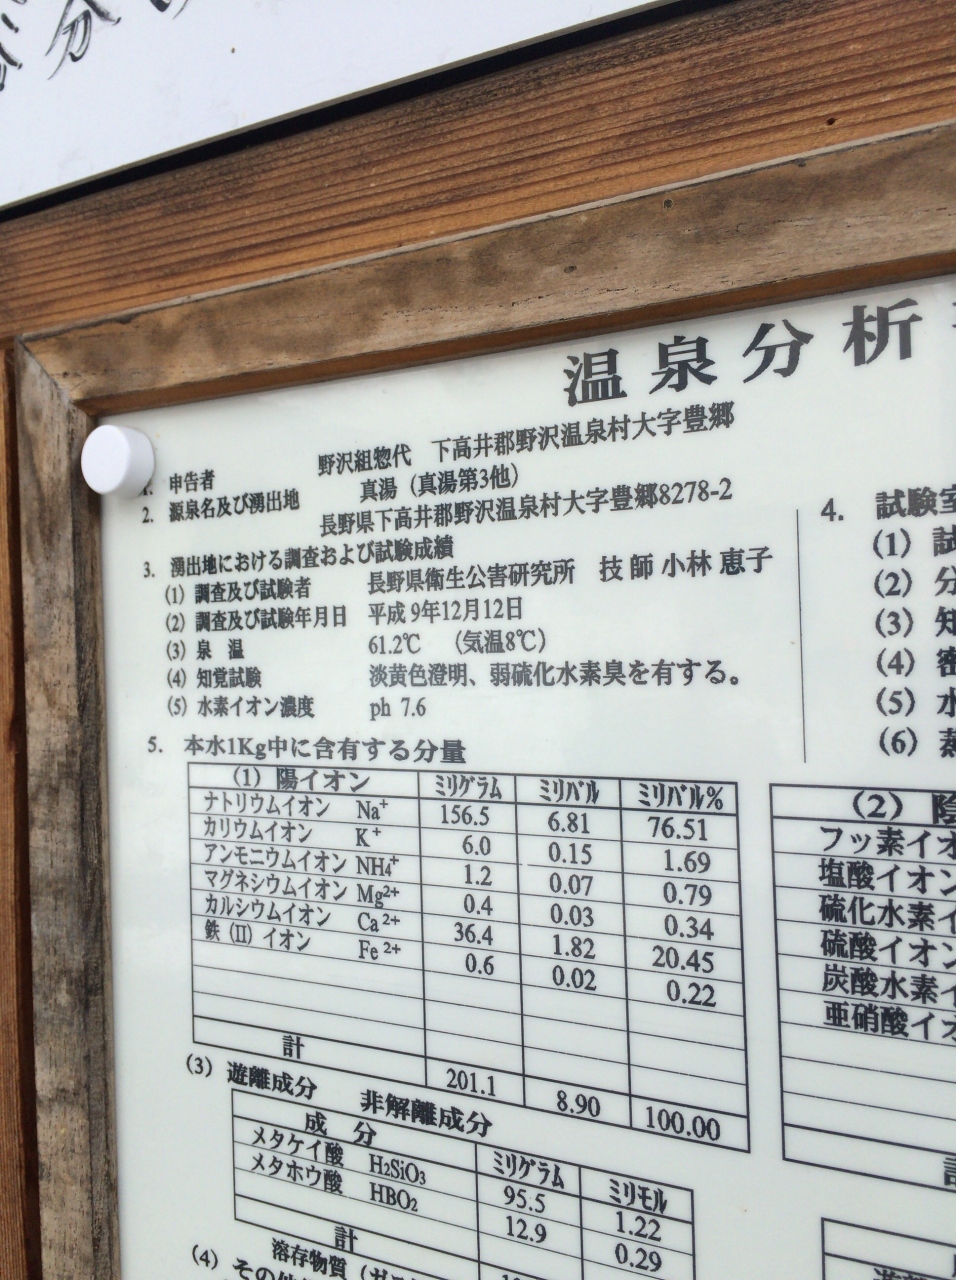 温泉分析
1. 申告者 野沢組惣代 下高井郡野沢温泉村大字豊郷
2. 源泉名及び湧出地 真湯（真湯第3他）
長野県下高井郡野沢温泉村大字豊郷8278-2
3. 湧出地における調査および試験成績
(1) 調査及び試験者 長野県衛生公害研究所 技師 小林 恵子
(2) 調査及び試験年月日 平成9年12月12日
(3) 泉温 61.2℃ （気温8℃）
(4) 知覚試験 淡黄色澄明、弱硫化水素臭を有する。
(5) 水素イオン濃度 ph 7.6
4. 試験室
(1) 試
(2) 分
(3) 知
(4) 密
(5) 水
(6) 蒸
5. 本水1Kg中に含有する分量
(1) 陽イオン ミリグラム ミリバル ミリバル%
ナトリウムイオン Na⁺ 156.5 6.81 76.51
カリウムイオン K⁺ 6.0 0.15 1.69
アンモニウムイオン NH₄⁺ 1.2 0.07 0.79
マグネシウムイオン Mg²⁺ 0.4 0.03 0.34
カルシウムイオン Ca²⁺ 36.4 1.82 20.45
鉄（II）イオン Fe²⁺ 0.6 0.02 0.22
計 201.1 8.90 100.00
(2) 陰
フッ素イオ
塩酸イオン
硫化水素イ
硫酸イオン
炭酸水素イ
亜硝酸イオ
計
(3) 遊離成分 非解離成分
成分 ミリグラム ミリモル
メタケイ酸 H₂SiO₃ 95.5 1.22
メタホウ酸 HBO₂ 12.9 0.29
計
溶存物質（ガス
(4) その他